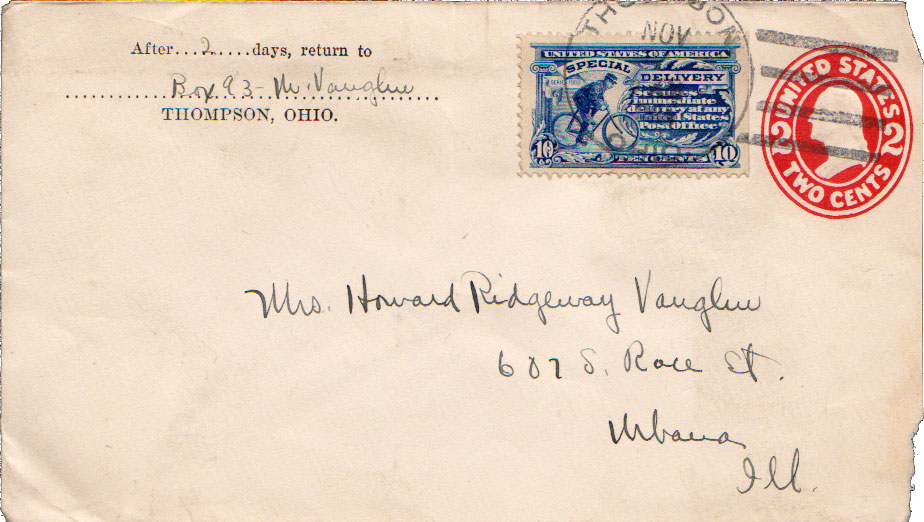 After...2....days, return to
Box 93 - M. Vaughn
THOMPSON, OHIO.
NOV
UNITED STATES OF AMERICA
SPECIAL DELIVERY
Secures
immediate
delivery at any
United States
Post Office
10 TEN CENTS 10
UNITED STATES
2 2
TWO CENTS
Mrs. Howard Ridgeway Vaughn
607 S. Race St.
Urbana
Ill.